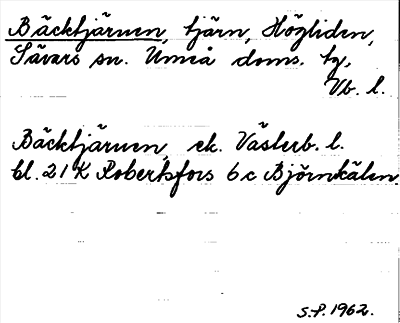 Bäcktjärnen, tjärn, Högliden,
Sävars sn. Umeå doms. tg,
Vb. l.
Bäcktjärnen, ek. Västerb. l.
bl. 21 K Robertsfors 6 c Björnkälen
S.P. 1962.